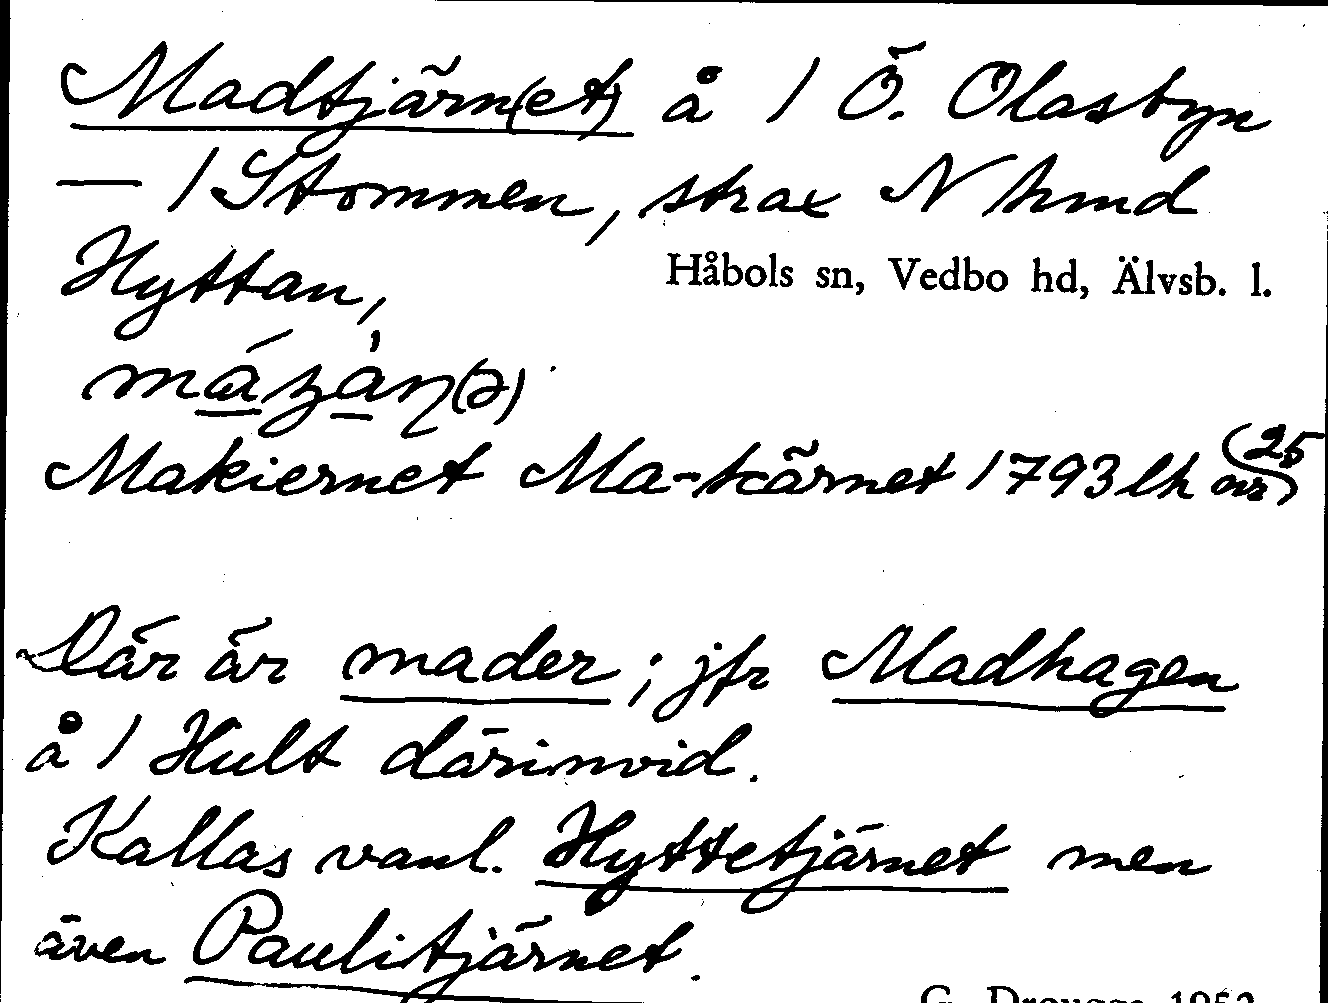 Madtjärn(et) å 1 Ö. Olasbyn
— 1 Stommen, strax N hmd
Hyttan,
Håbols sn, Vedbo hd, Älvsb. l.
Makiernet Ma-kärnet 1793 lh
Där är mader ; jfr Madhagen
å 1 Hult därinvid.
Kallas vanl. Hyttetjärnet men
även Paulitjärnet.